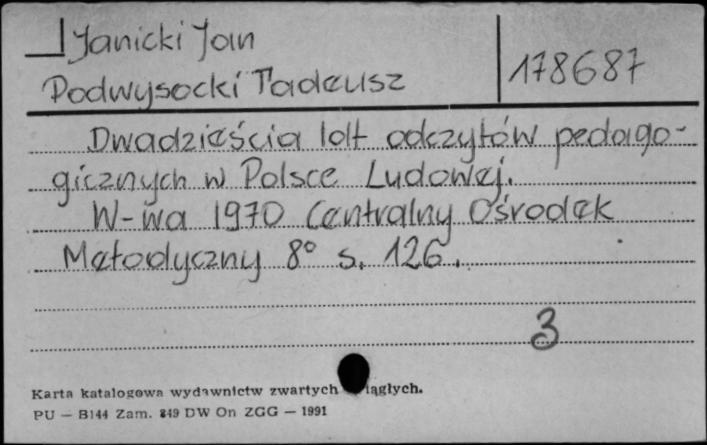 Janicki Jan
Podwysocki Tadeusz
178687
Dwadzieścia lat odczytów pedago-
gicznych w Polsce Ludowej.
W-wa 1970 Centralny Ośrodek
Metodyczny 8° s. 126.
3
Karta katalogowa wydawnictw zwartych ciągłych.
PU — B144 Zam. 849 DW On ZGG — 1991